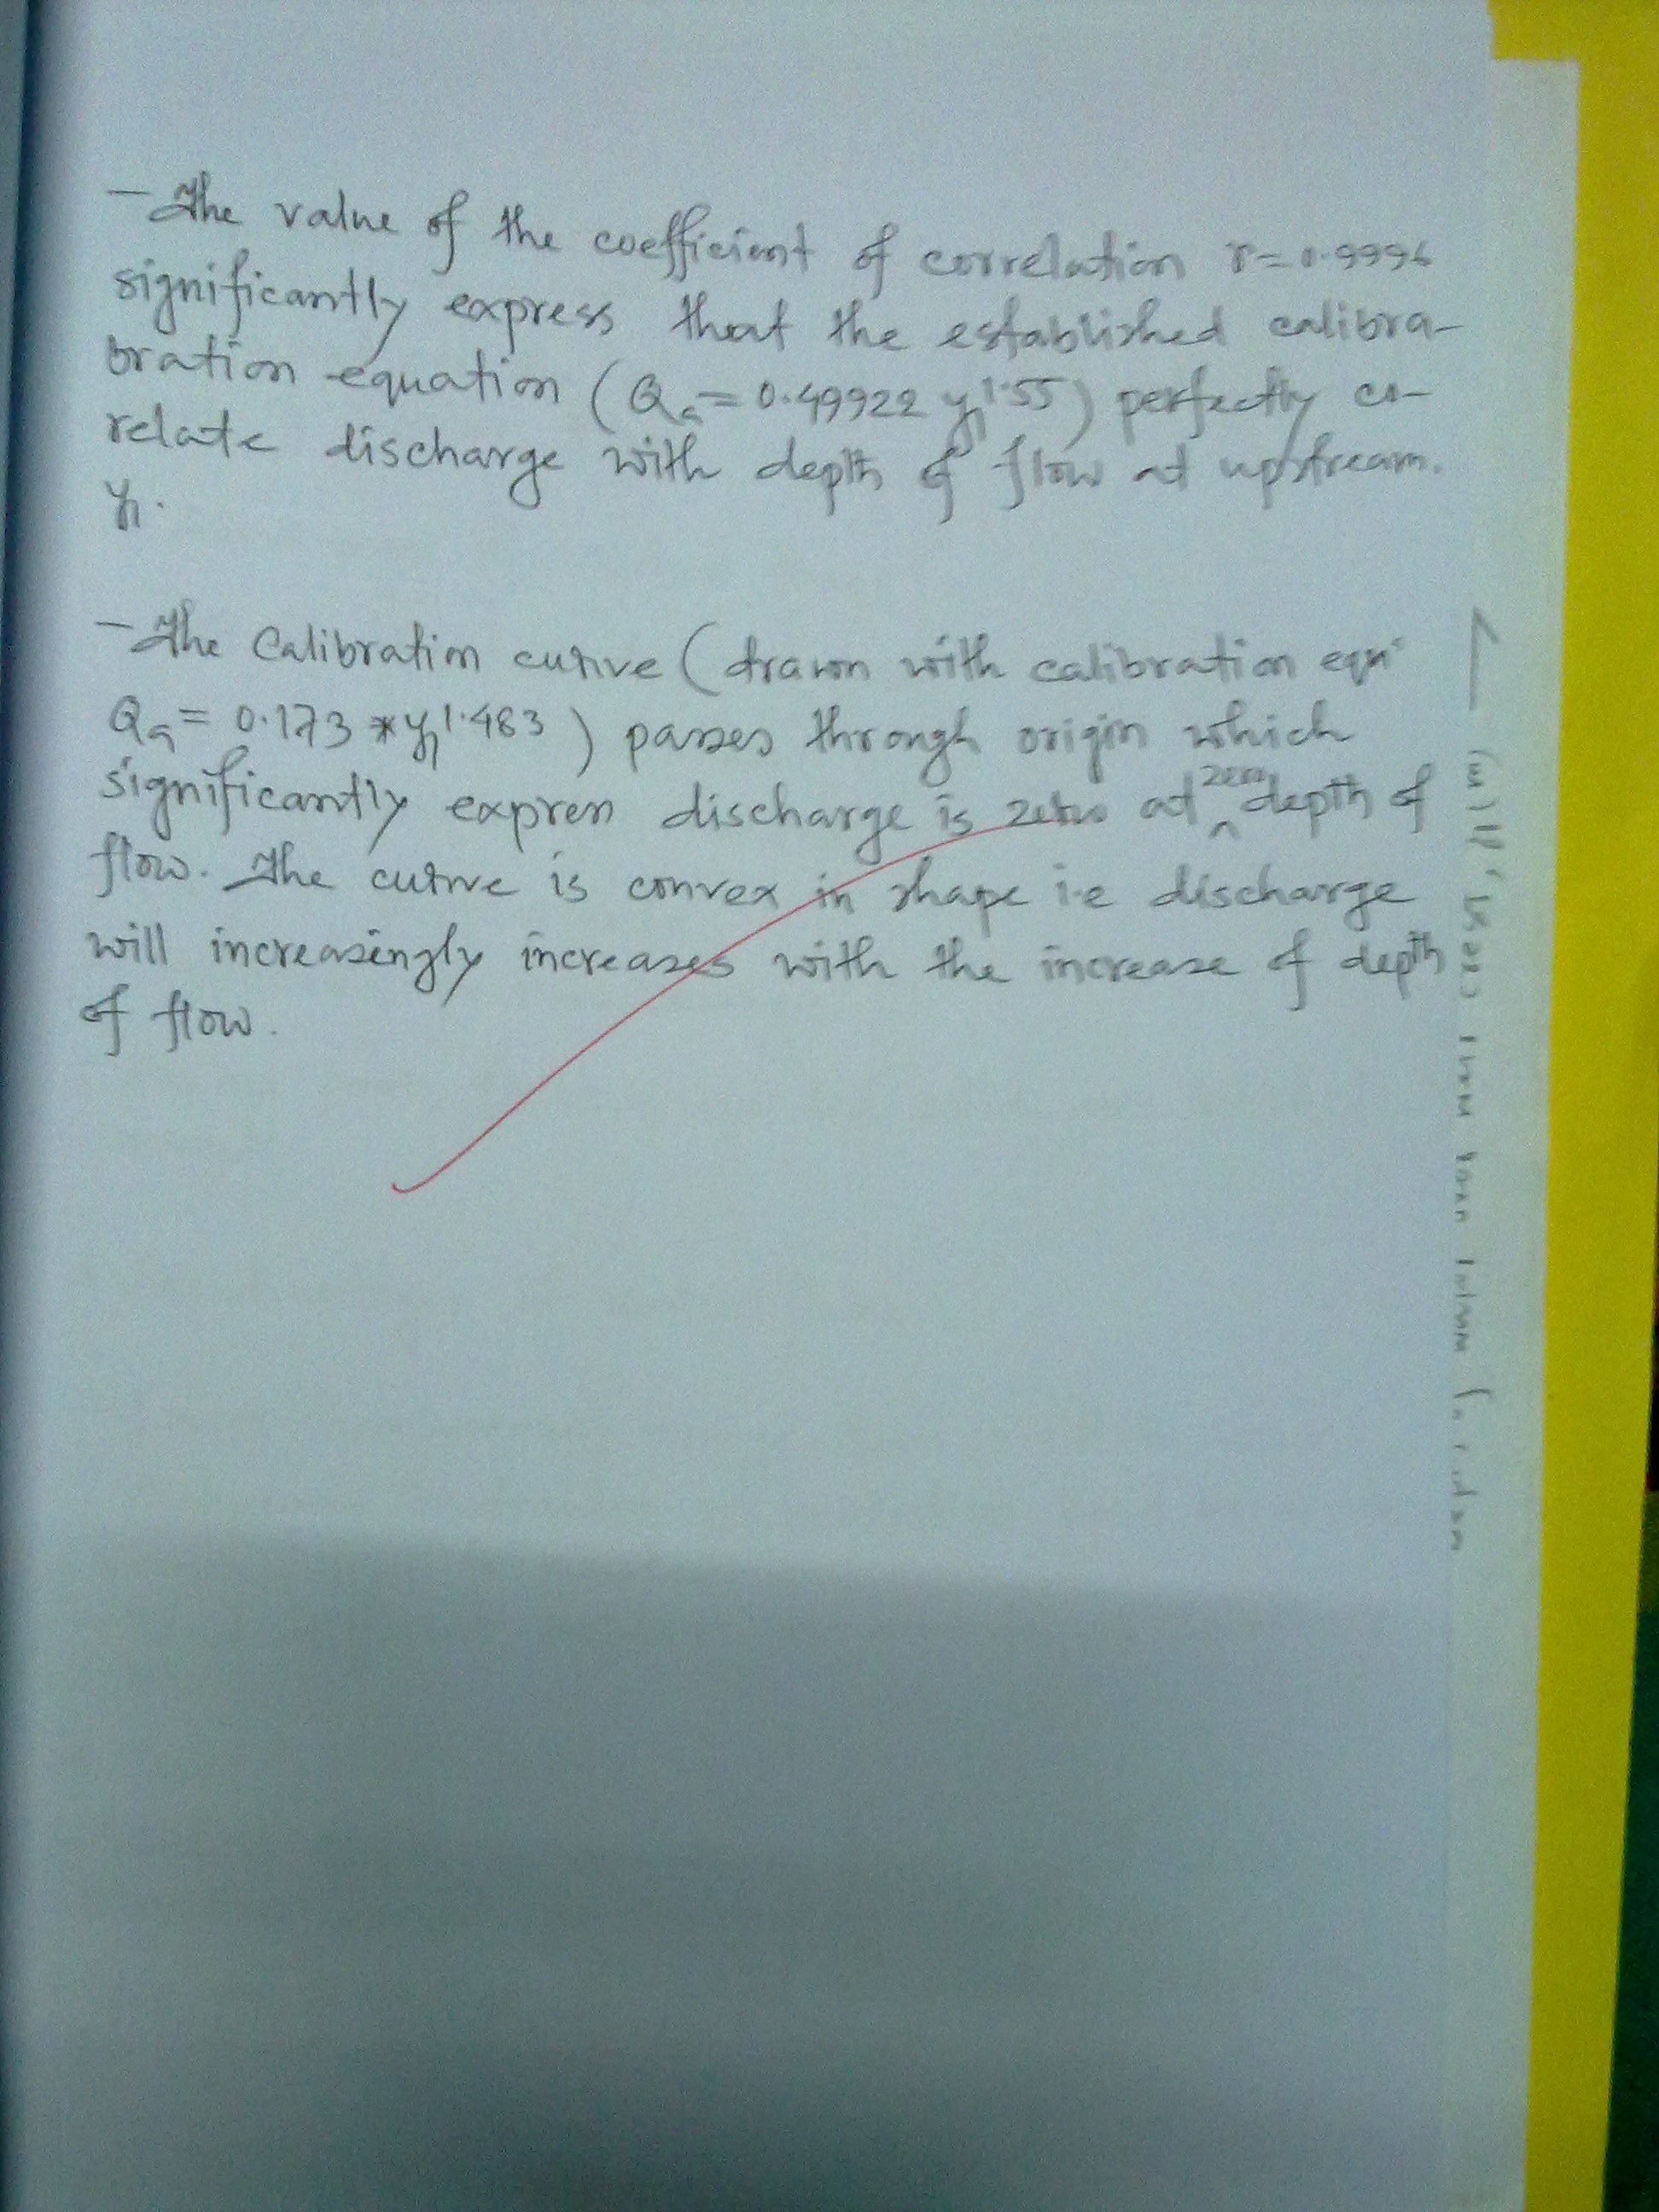 — The value of the coefficient of correlation r=0.9996
significantly express that the established calibra-
bration equation (Qa=0.49922 y1^1.55) perfectly co-
relate discharge with depth of flow at upstream.
y1.
— The Calibration curve (drawn with calibration eqn
Qa= 0.173 *y1^1.483) passes through origin which
significantly express discharge is zero at zero depth of
flow. The curve is convex in shape i.e discharge
will increasingly increases with the increase of depth
of flow.